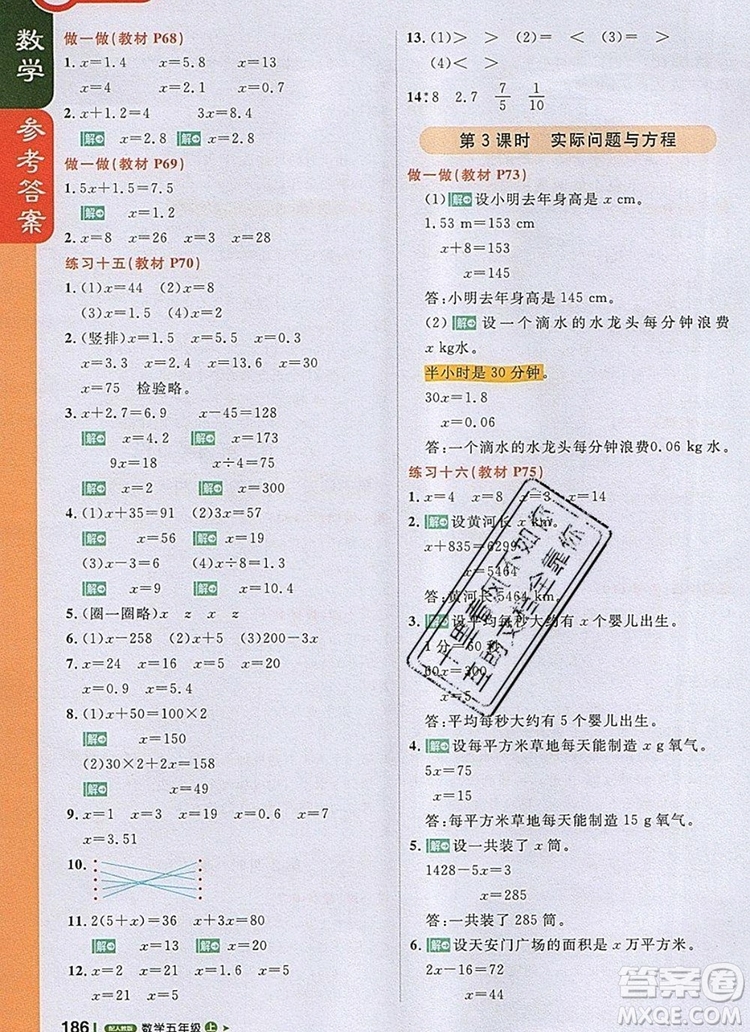 数学
参考答案
做一做(教材 P68)
1. x=1.4 x=5.8 x=13
x=4 x=80
2. x+1.2=4 3x=8.4
解 x=2.8 解 x=2.8
做一做(教材 P69)
1. 5x+1.5=7.5
解 x=1.2
2. x=8 x=26 x=3 x=28
练习十五(教材 P70)
1. (1)x=44 (2)x=8
(3)x=1.5 (4)x=2
2. (竖排)x=5.5 x=5 x=0.3
x=3.4 x=13.6 x=30
x=75 检验略。
3. x+2.7=6.9 x-45=128
解 x=4.2 解 x=173
9x=18 x÷4=75
解 x=2 解 x=300
4. (1)x+35=91 (2)3x=57
解 x=56 解 x=19
(3)x-6=3.9 (4)x÷8=1.3
解 x=9.9 解 x=10.4
5. (圈一圈略) x z x z
6. (1)x-258 (2)5x (3)200-3x
7. x=81 x=2.4 x=2 x=7
8. (1)x+50=200
解 x=150
(2)30×2+2x=158
解 x=49
9. x=1 x=3 x=0.6 x=7
x=3.51
10.
11. 2(5+x)=36 x+3x=80
解 x=13 解 x=20
12. x=2 x=21 x=15 x=5
186 配人教版 数学五年级 上
13. (1)> > (2)= = (3)< <
(4)< >
14. 8 2.7 7/5 1/10
第 3 课时 实际问题与方程
做一做(教材 P73)
(1)解 设小明去年身高是 x cm。
1.53 m=153 cm
x+8=153
x=145
答:小明去年身高是 145 cm。
(2)解 设一个滴水的水龙头每分钟浪费
x kg水。
半小时是 30 分钟。
30x=1.8
x=0.06
答:一个滴水的水龙头每分钟浪费0.06 kg水。
练习十六(教材 P75)
1. x=4 x=8 x=3 x=14
2. 解 设黄河长 x km。
x+835=6299
x=5464
答:黄河长 5464 km。
3. 解 设平均每秒大约有 x 个婴儿出生。
1 分=60 秒
60x=300
x=5
答:平均每秒大约有 5 个婴儿出生。
4. 解 设每平方米草地每天能制造 x g氧气。
5x=75
x=15
答:每平方米草地每天能制造 15 g氧气。
5. 解 设一共装了 x 筒。
1428-5x=3
x=285
答:一共装了 285 筒。
6. 解 设天安门广场的面积是 x 万平方米。
2x-16=72
x=44
答案圈
MXQE.COM